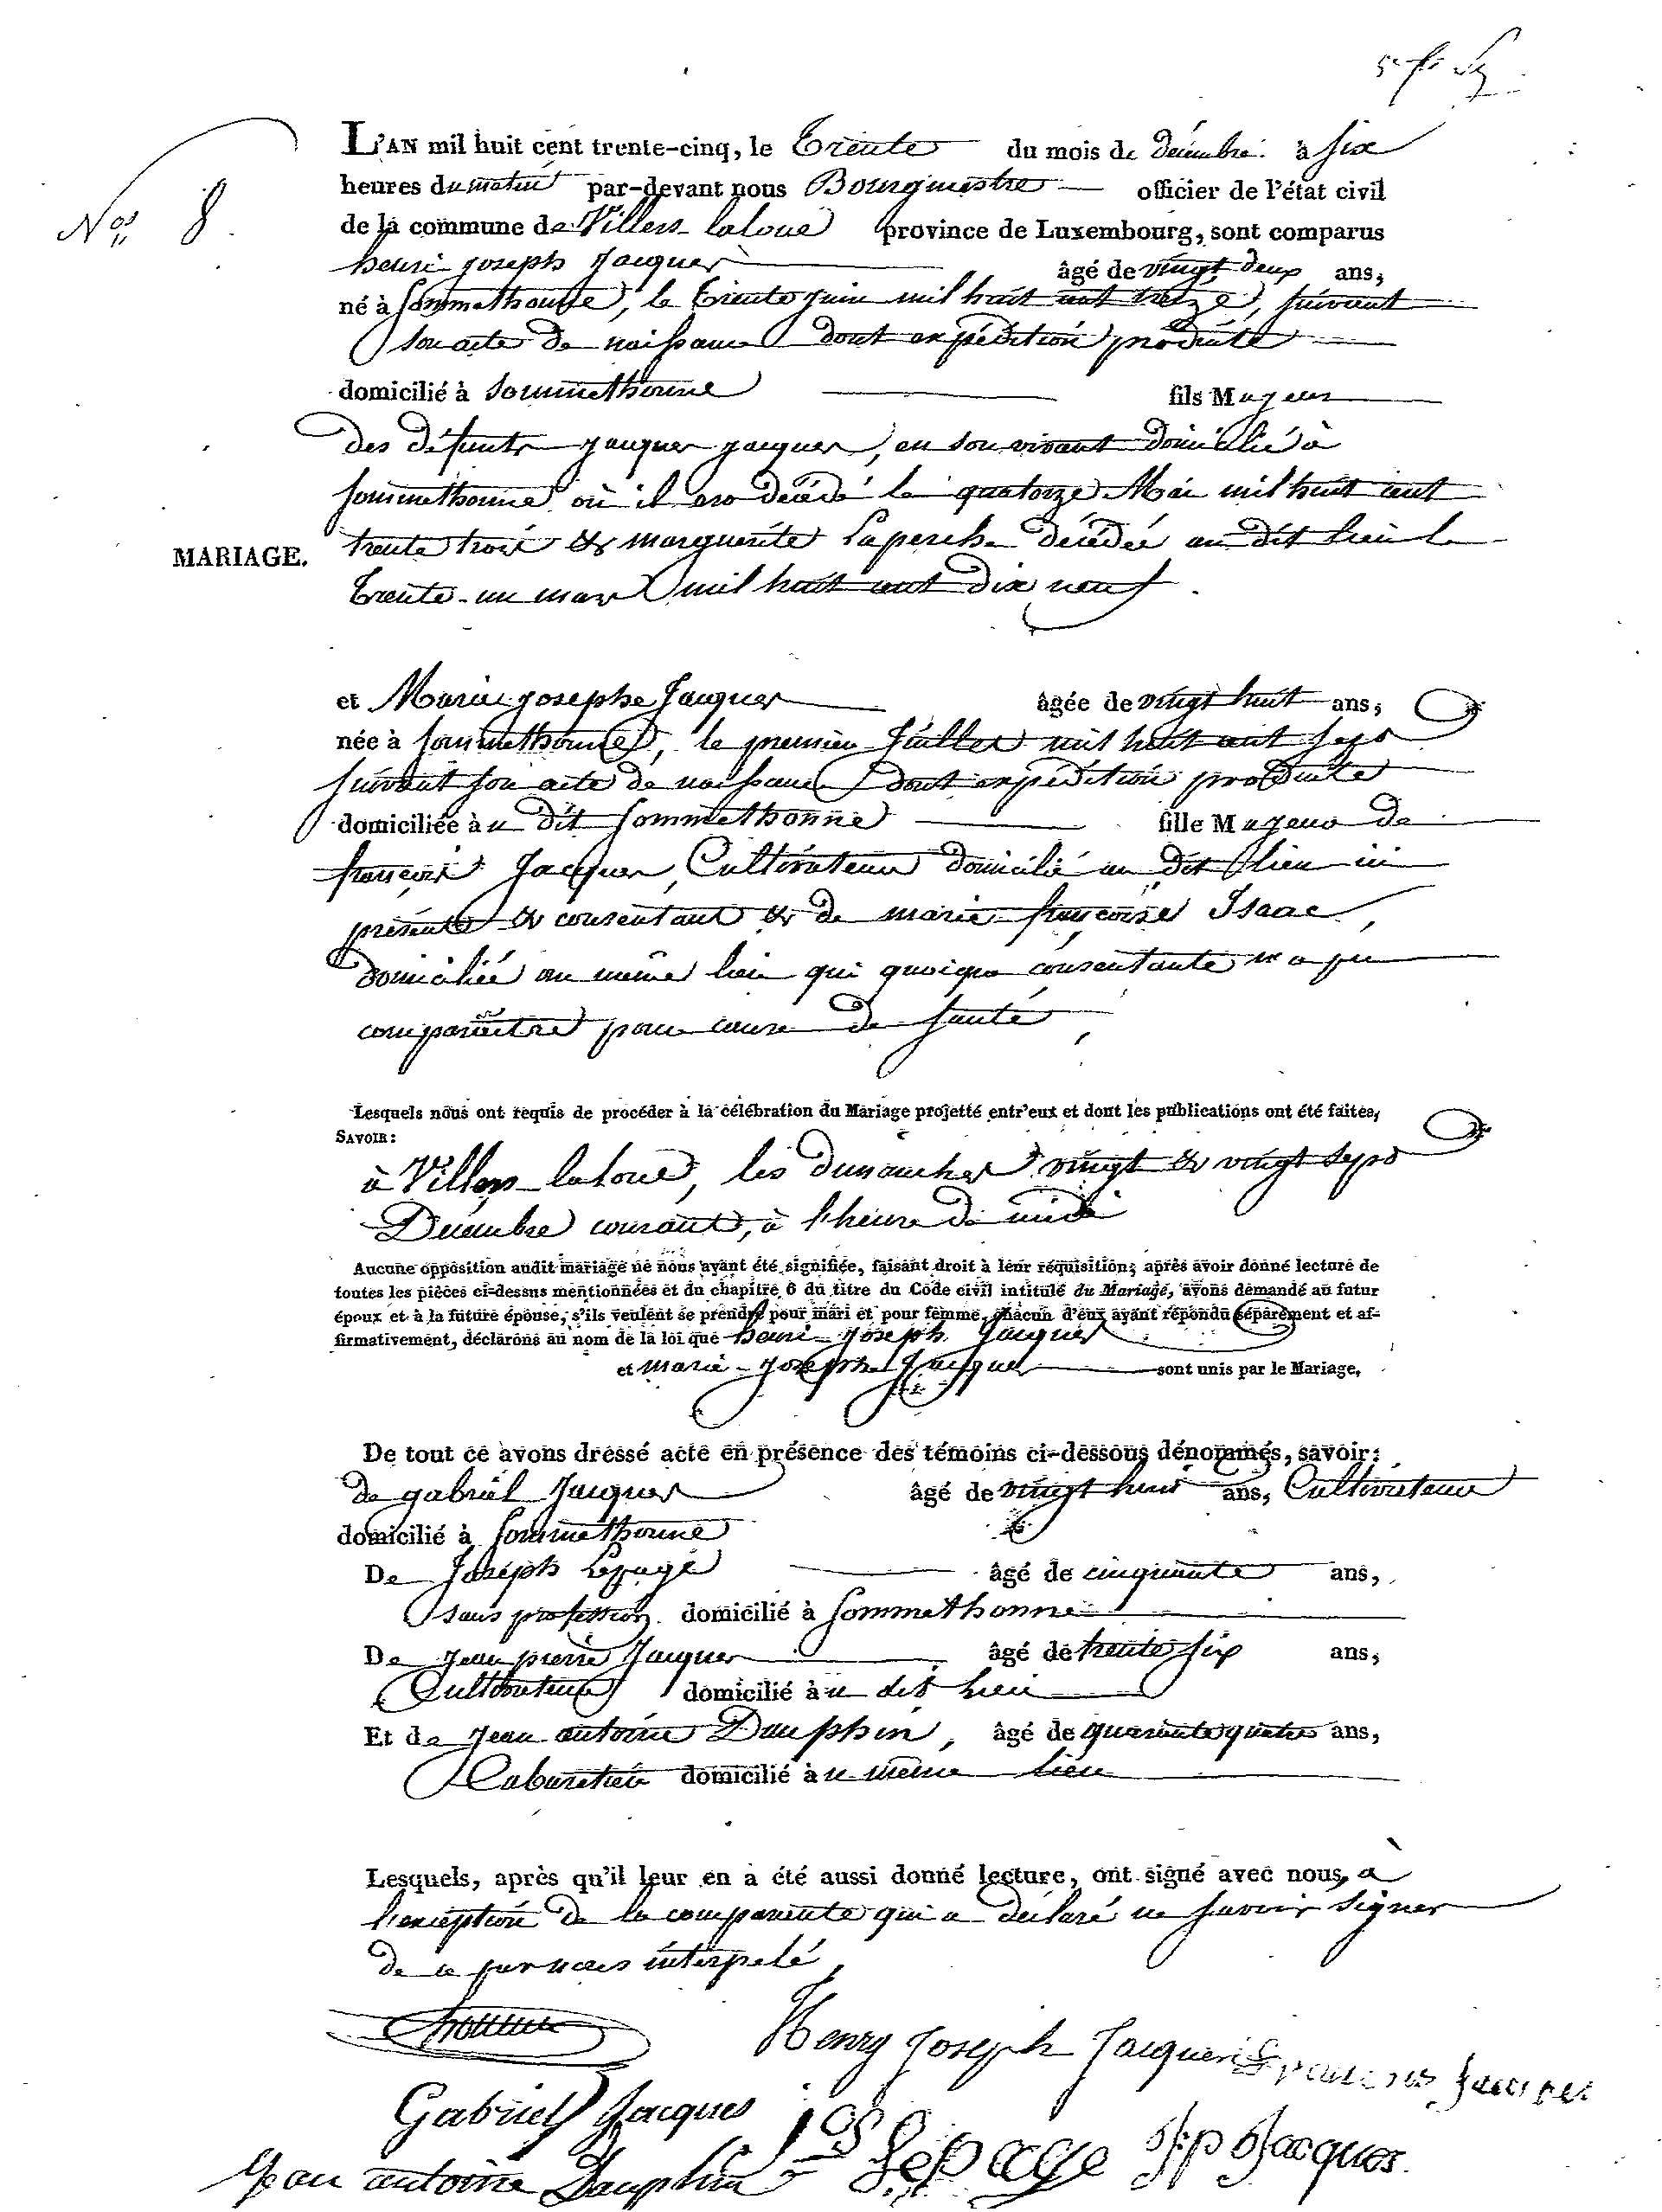 L'AN mil huit cent trente-cinq, le Trente du mois de décembre à six
heures du matin par-devant nous Bourgmestre officier de l'état civil
Nos 8
de la commune de Villers laloue province de Luxembourg, sont comparus
henri joseph Jacques âgé de vingt deux ans,
né à Sommethonne, le trente juin mil huit cent treize, suivant
son acte de naissance dont expédition produite
domicilié à Sommethonne fils Majeur
des défunts jacques jacques, en son vivant domicilié à
Sommethonne où il est décédé le quatorze Mai mil huit cent
trente trois & marguerite Laperche décédée au dit lieu le
MARIAGE.
Trente-un mars mil huit cent dix neuf.
et Marie josephe Jacques âgée de vingt huit ans,
née à Sommethonne, le premier Juillet mil huit cent sept
suivant son acte de naissance dont expédition produite
domiciliée au dit Sommethonne fille Majeure de
françois Jacques, Cultivateur domicilié au dit lieu ici
présent & consentant & de marie françoise Isaac,
domiciliée au même lieu qui quoique consentante n'a pu
comparaître pour cause de santé,
Lesquels nous ont requis de procéder à la célébration du Mariage projetté entr'eux et dont les publications ont été faites,
SAVOIR:
à Villers-laloue, les dimanches vingt & vingt sept
Décembre courant, à l'heure de midi
Aucune opposition audit mariage ne nous ayant été signifiée, faisant droit à leur réquisition; après avoir donné lecture de
toutes les pièces ci-dessus mentionnées et du chapitre 6 du titre du Code civil intitulé du Mariage, avons demandé au futur
époux et à la future épouse, s'ils veulent se prendre pour mari et pour femme, chacun d'eux ayant répondu séparément et af-
firmativement, déclarons au nom de la loi que henri-Joseph Jacques
et marie-Josephe Jacques sont unis par le Mariage.
De tout ce avons dressé acte en présence des témoins ci-dessous dénommés, savoir:
de gabriel Jacques âgé de vingt huit ans, Cultivateur
domicilié à Sommethonne
De Joseph Lepage âgé de cinquante ans,
sans profession domicilié à Sommethonne
De jean pierre Jacques âgé de trente six ans,
Cultivateur domicilié au dit lieu
Et de jean antoine Dauphin, âgé de quarante quatre ans,
Cabaretier domicilié au même lieu
Lesquels, après qu'il leur en a été aussi donné lecture, ont signé avec nous, à
l'exception de la comparante qui a déclaré ne savoir signer
de ce par nous interpelé,
Henry Joseph Jacques francois Jacques
Gabriel Jacques jos Lepage JP Jacques
Jean antoine Dauphin